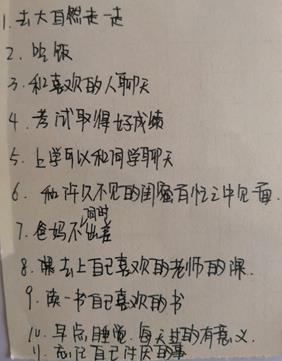 1. 去大自然走一走
2. 吃饭
3. 和喜欢的人聊天
4. 考试取得好成绩
5. 上学可以和同学聊天
6. 和许久不见的闺蜜百忙之中见面.
7. 爸妈不同时出差
8. 课去上自己喜欢的老师的课.
9. 读一书自己喜欢的书
10. 早点睡觉. 每天过的有意义.
11. 忘记自己